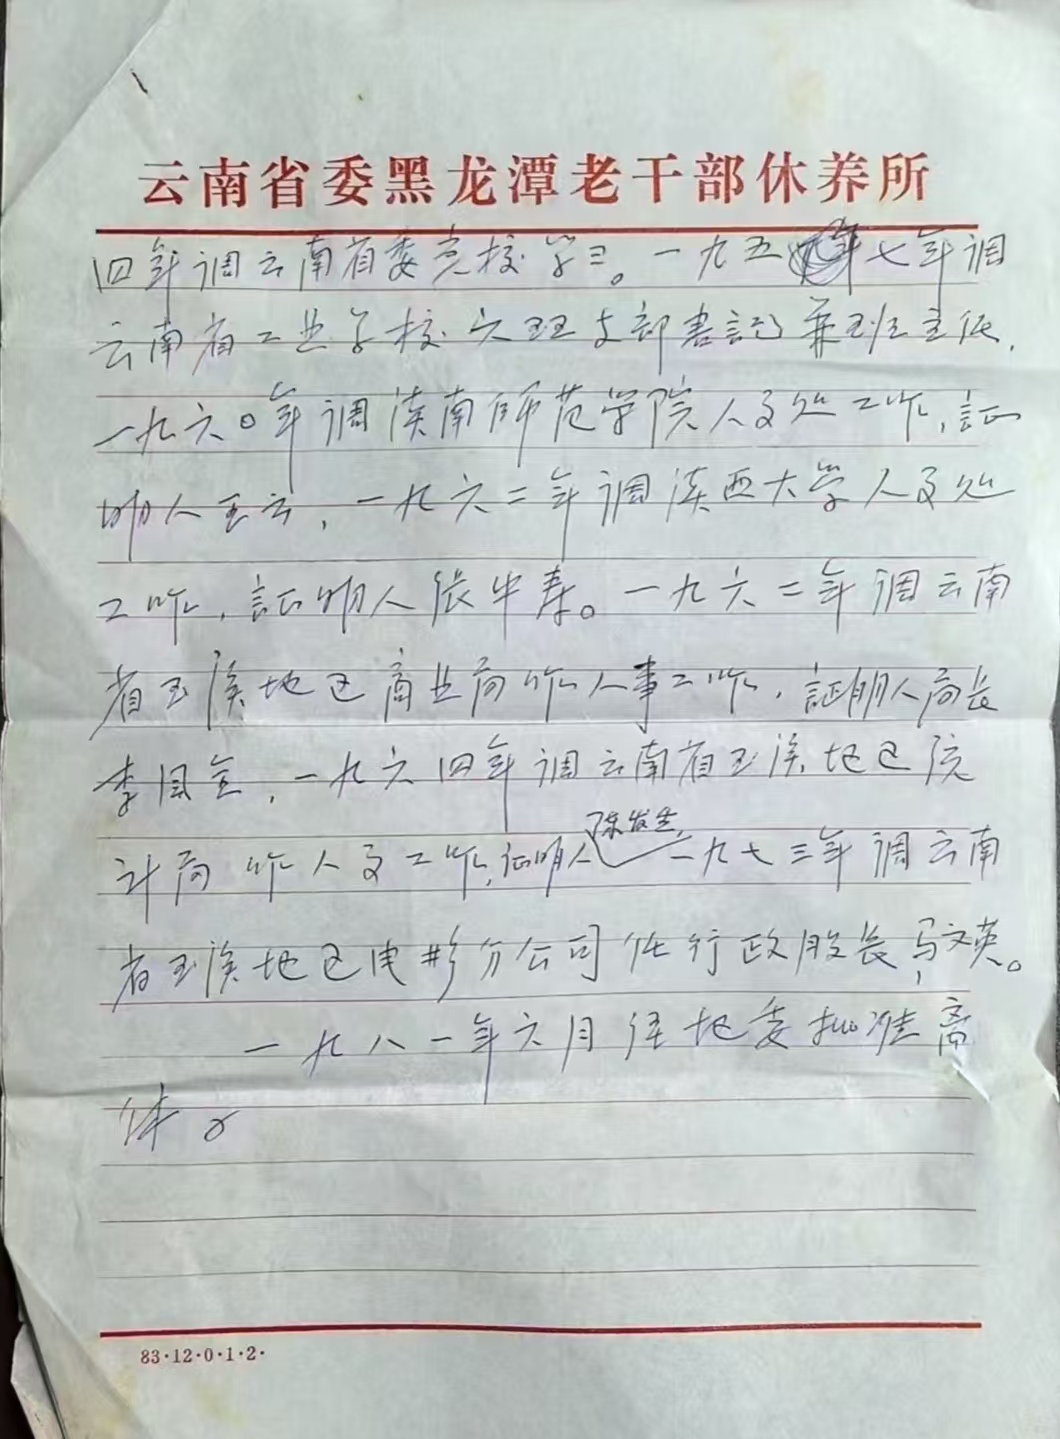 云南省委黑龙潭老干部休养所
四年调云南省委党校学习。一九五七年调
云南省工业学校支部書記兼班主任,
一九六〇年调滇南师范学院人事处工作,証
明人王云,一九六二年调滇西大学人事处
工作,証明人張中寿。一九六二年调云南
省玉溪地区商业局作人事工作,証明人局长
李国金,一九六四年调云南省玉溪地区统
计局作人事工作,证明人陈发生,一九七三年调云南
省玉溪地区电影分公司任行政股长,马文英。
一九八一年六月经地委批准离
休。
83·12·0·1·2·